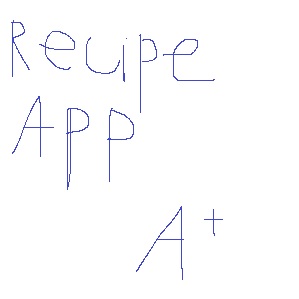 Recipe
App
A+